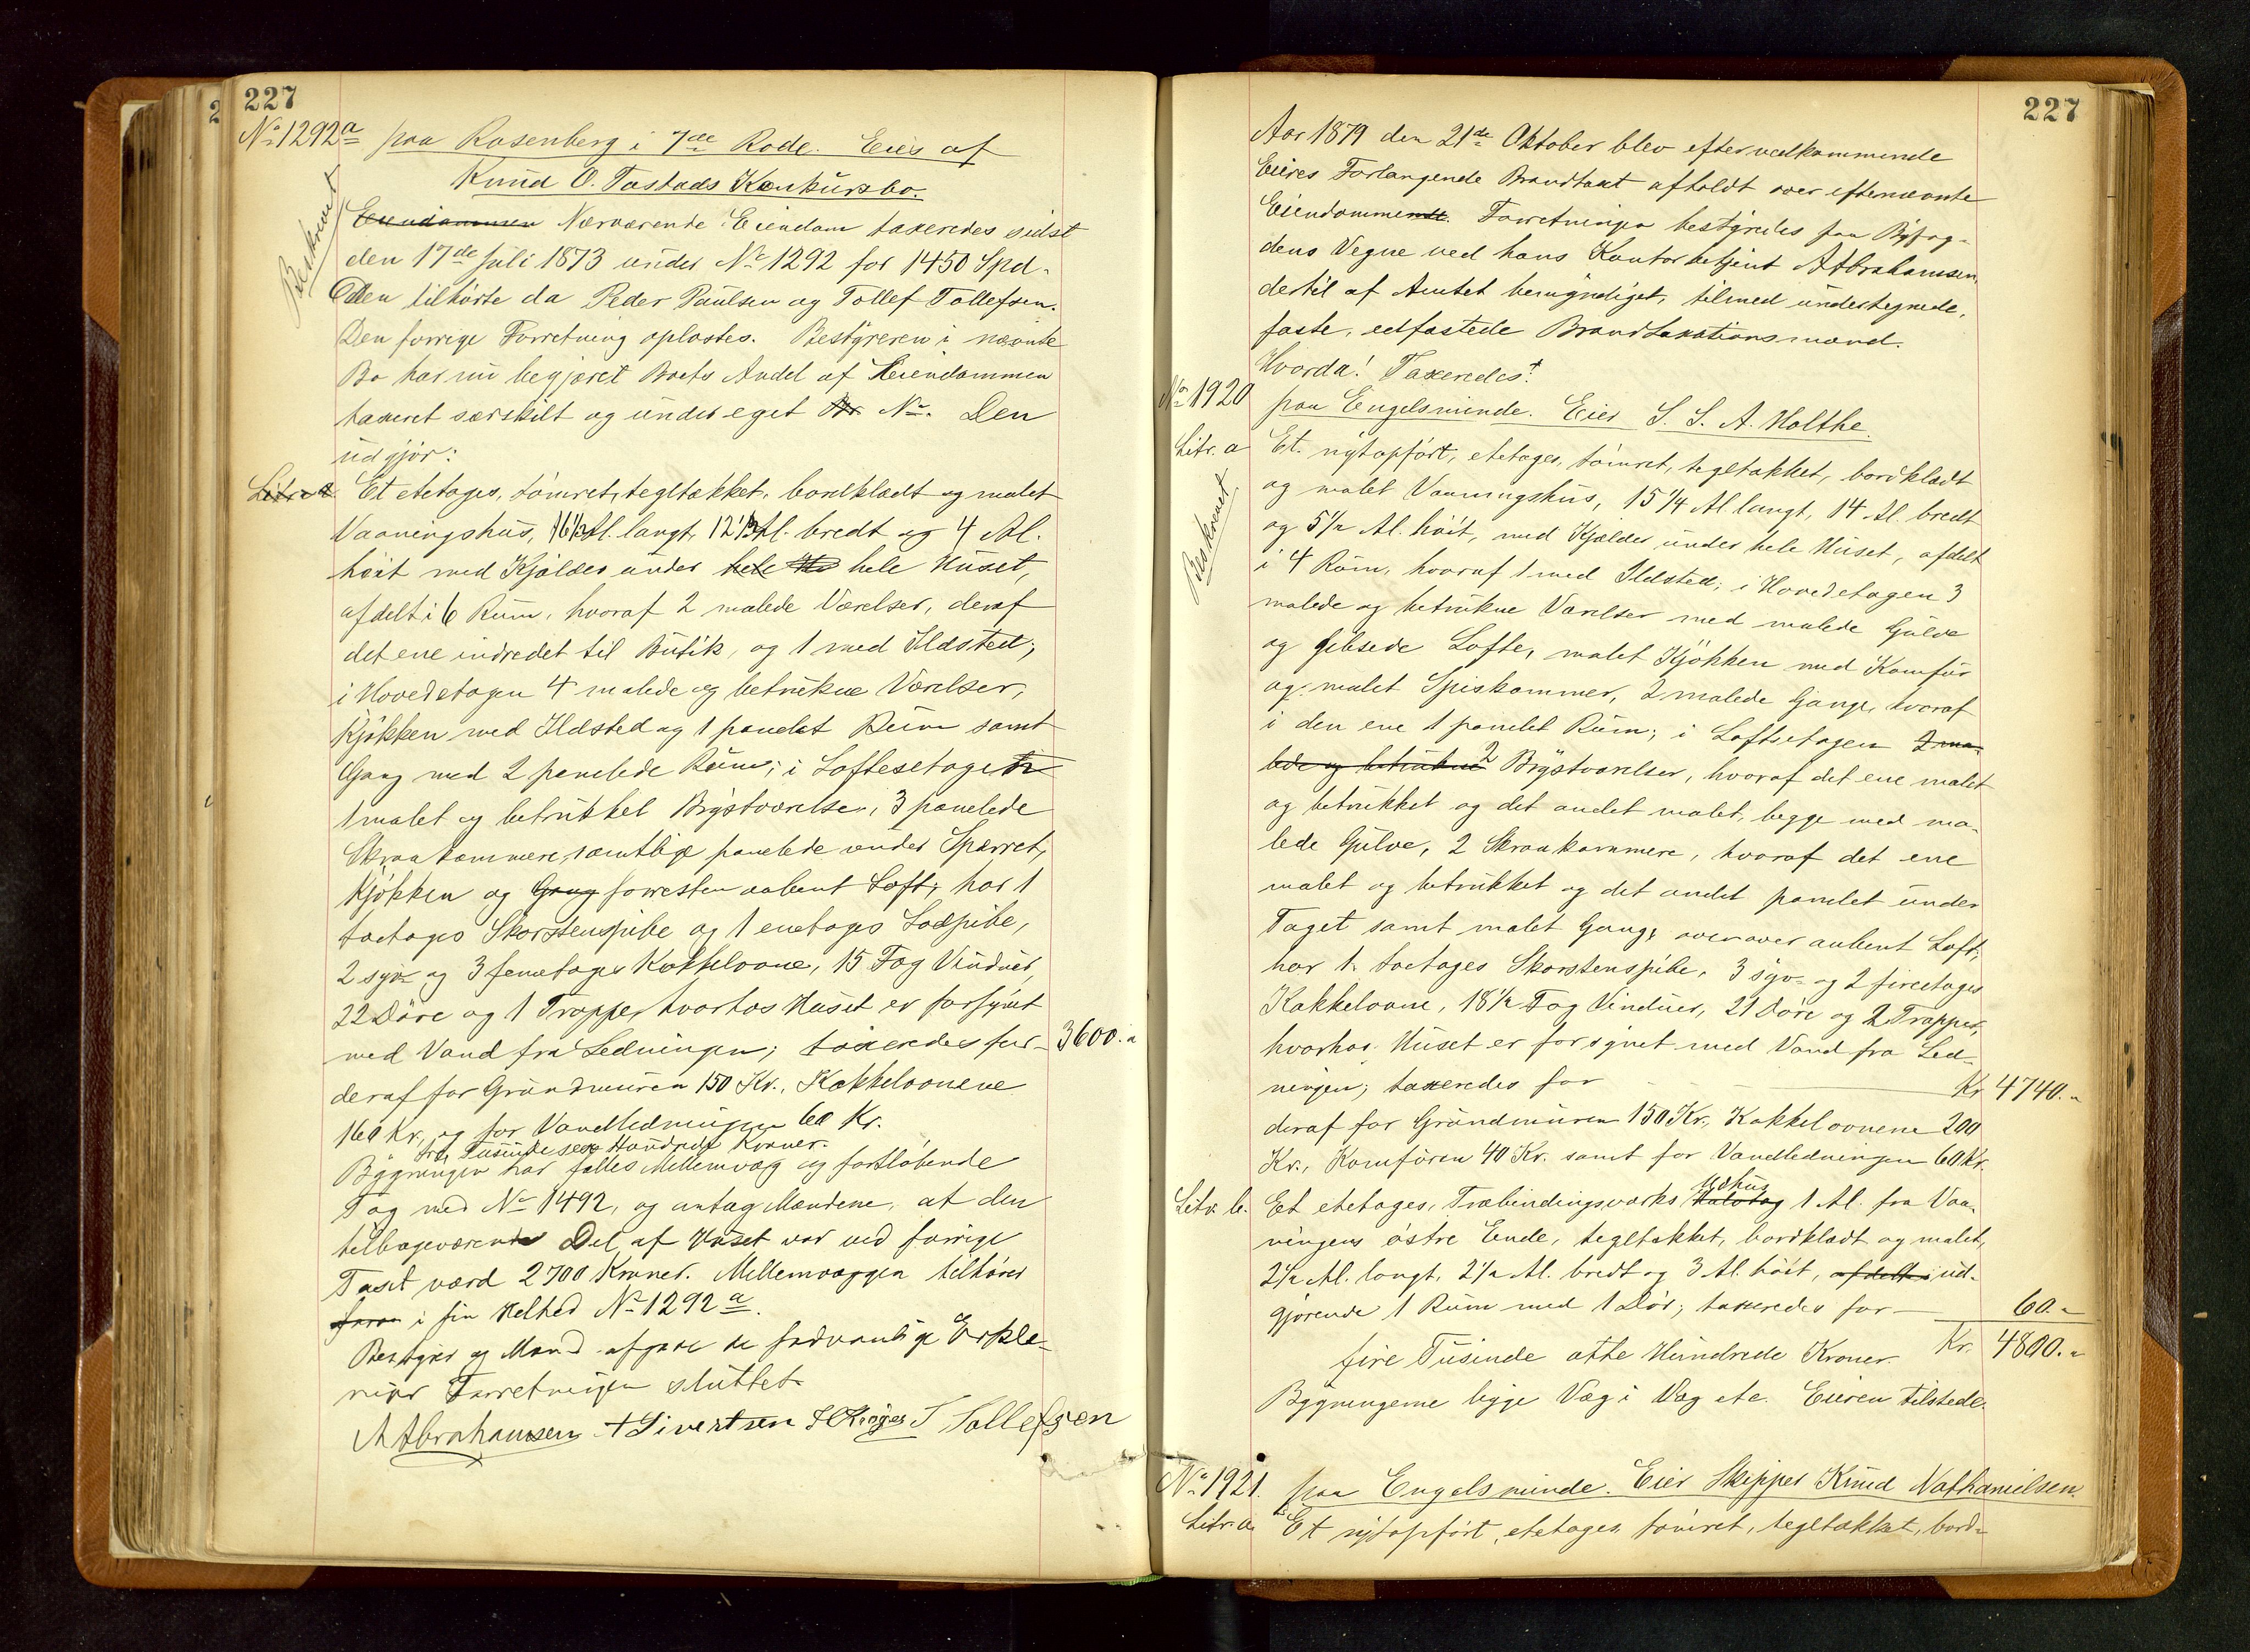 227
No 1292a paa Rosenberg i 7de Rode. Eies af
Knud O. Tastads Konkursbo.
Beskrevet
Eiendommen Nærværende Eiendom taxeredes sidst
den 17de Juli 1873 under No 1292 for 1450 Spd.
Den tilhørte da Peder Paulsen og Tollef Tollefsen.
Den forrige Forretning oplæstes. Bestyreren i nævnte
Bo har nu begjæret Boets Andel af Eiendommen
taxeret særskilt og under eget Nr No. Den
udgjør:
Litra a Et etetages, tømret, tegltækket, bordklædt og malet
Vaaningshus, 16 1/2 Al. langt, 12 1/3 Al. bredt og 4 Al.
høit med Kjælder under hele Hu hele Huset,
afdelt i 6 Rum, hvoraf 2 malede Værelser, deraf
det ene indredet til Butik, og 1 med Ildsted;
i Hovedetagen 4 malede og betrukne Værelser,
Kjøkken med Ildsted og 1 panelet Rum samt
Gang med 2 panelede Rum; i Loftesetagen
1 malet og betrukket Brystværelse, 3 panelede
Skraakammere, samtlige panelede under Sperret,
Kjøkken og Gang forresten aabent Loft; har 1
toetages Skorstenspibe og 1 enetages Lodpibe,
2 syv- og 3 femetages Kakkelovne, 15 Fag Vinduer,
22 Døre og 1 Trappe, hvorhos Huset er forsynet
med Vand fra Ledningen; taxeredes for - 3600.-
deraf for Grundmuren 150 Kr., Kakkelovnene
160 Kr. og for Vandledningen 60 Kr.
tre Tusinde sex Hundrede Kroner.
Bygningen har fælles Mellemvæg og fortløbende
Tag med No 1492, og antog Mændene, at den
tilbageværende Del af Huset var ved forrige
Taxt værd 2700 Kroner. Mellemvæggen tilhører
i sin Helhed No 1292a.
Bestyrer og Mænd afgave de sædvanlige Erklæ-
ringer Forretningen sluttet.
A Abrahamsen A Sivertsen T Tollefsen
227
Aar 1879 den 21de Oktober blev efter vedkommende
Eieres Forlangende Brandtaxt afholdt over efternævnte
Eiendomme. Forretningen bestyredes paa Byfog-
dens Vegne ved hans Kontorbetjent A Abrahamsen,
dertil af Amtet bemyndiget, tilmed undertegnede,
faste, edfæstede Brandtaxationsmænd.
Hvorda! Taxeredes:
No 1920 paa Engelsminde. Eier S. S. A. Holthe.
Beskrevet
Litr. a Et nytopført, etetages, tømret, tegltækket, bordklædt
og malet Vaaningshus, 15 1/4 Al. langt, 14 Al. bredt
og 5 1/2 Al. høit, med Kjælder under hele Huset, afdelt
i 4 Rum, hvoraf 1 med Ildsted; i Hovedetagen 3
malede og betrukne Værelser med malede Gulve
og gibsede Lofte, malet Kjøkken med Komfur
og malet Spiskammer, 2 malede Gange, hvoraf
i den ene 1 panelet Rum; i Loftsetagen 2 ma-
lede og betrukne 2 Brystværelser, hvoraf det ene malet
og betrukket og det andet malet, begge med ma-
lede Gulve, 2 Skraakammere, hvoraf det ene
malet og betrukket og det andet panelet under
Taget samt malet Gang, ovenover aabent Loft;
har 1 toetages Skorstenspibe, 3 syv- og 2 fireetages
Kakkelovne, 18 1/2 Fag Vinduer, 21 Døre og 2 Trapper,
hvorhos Huset er forsynet med Vand fra Led-
ningen; taxeredes for - Kr. 4740.-
deraf for Grundmuren 150 Kr., Kakkelovnene 200
Kr., Komfuren 40 Kr. samt for Vandledningen 60 Kr.
Litr. b. Et etetages, Træbindingsværks Halvtag Udhus 1 Al. fra Vaa-
ningens østre Ende, tegltækket, bordklædt og malet,
2 1/2 Al. langt, 2 1/2 Al. bredt og 3 Al. høit, afdelt i ud-
gjørende 1 Rum med 1 Dør; taxeredes for - 60.-
fire Tusinde otte Hundrede Kroner. Kr. 4800.-
Bygningerne ligge Væg i Væg etc. Eieren tilstede.
No 1921. paa Engelsminde. Eier Skipper Knud Nathanielsen.
Litr. a Et nytopført, etetages, tømret, tegltækket, bord-